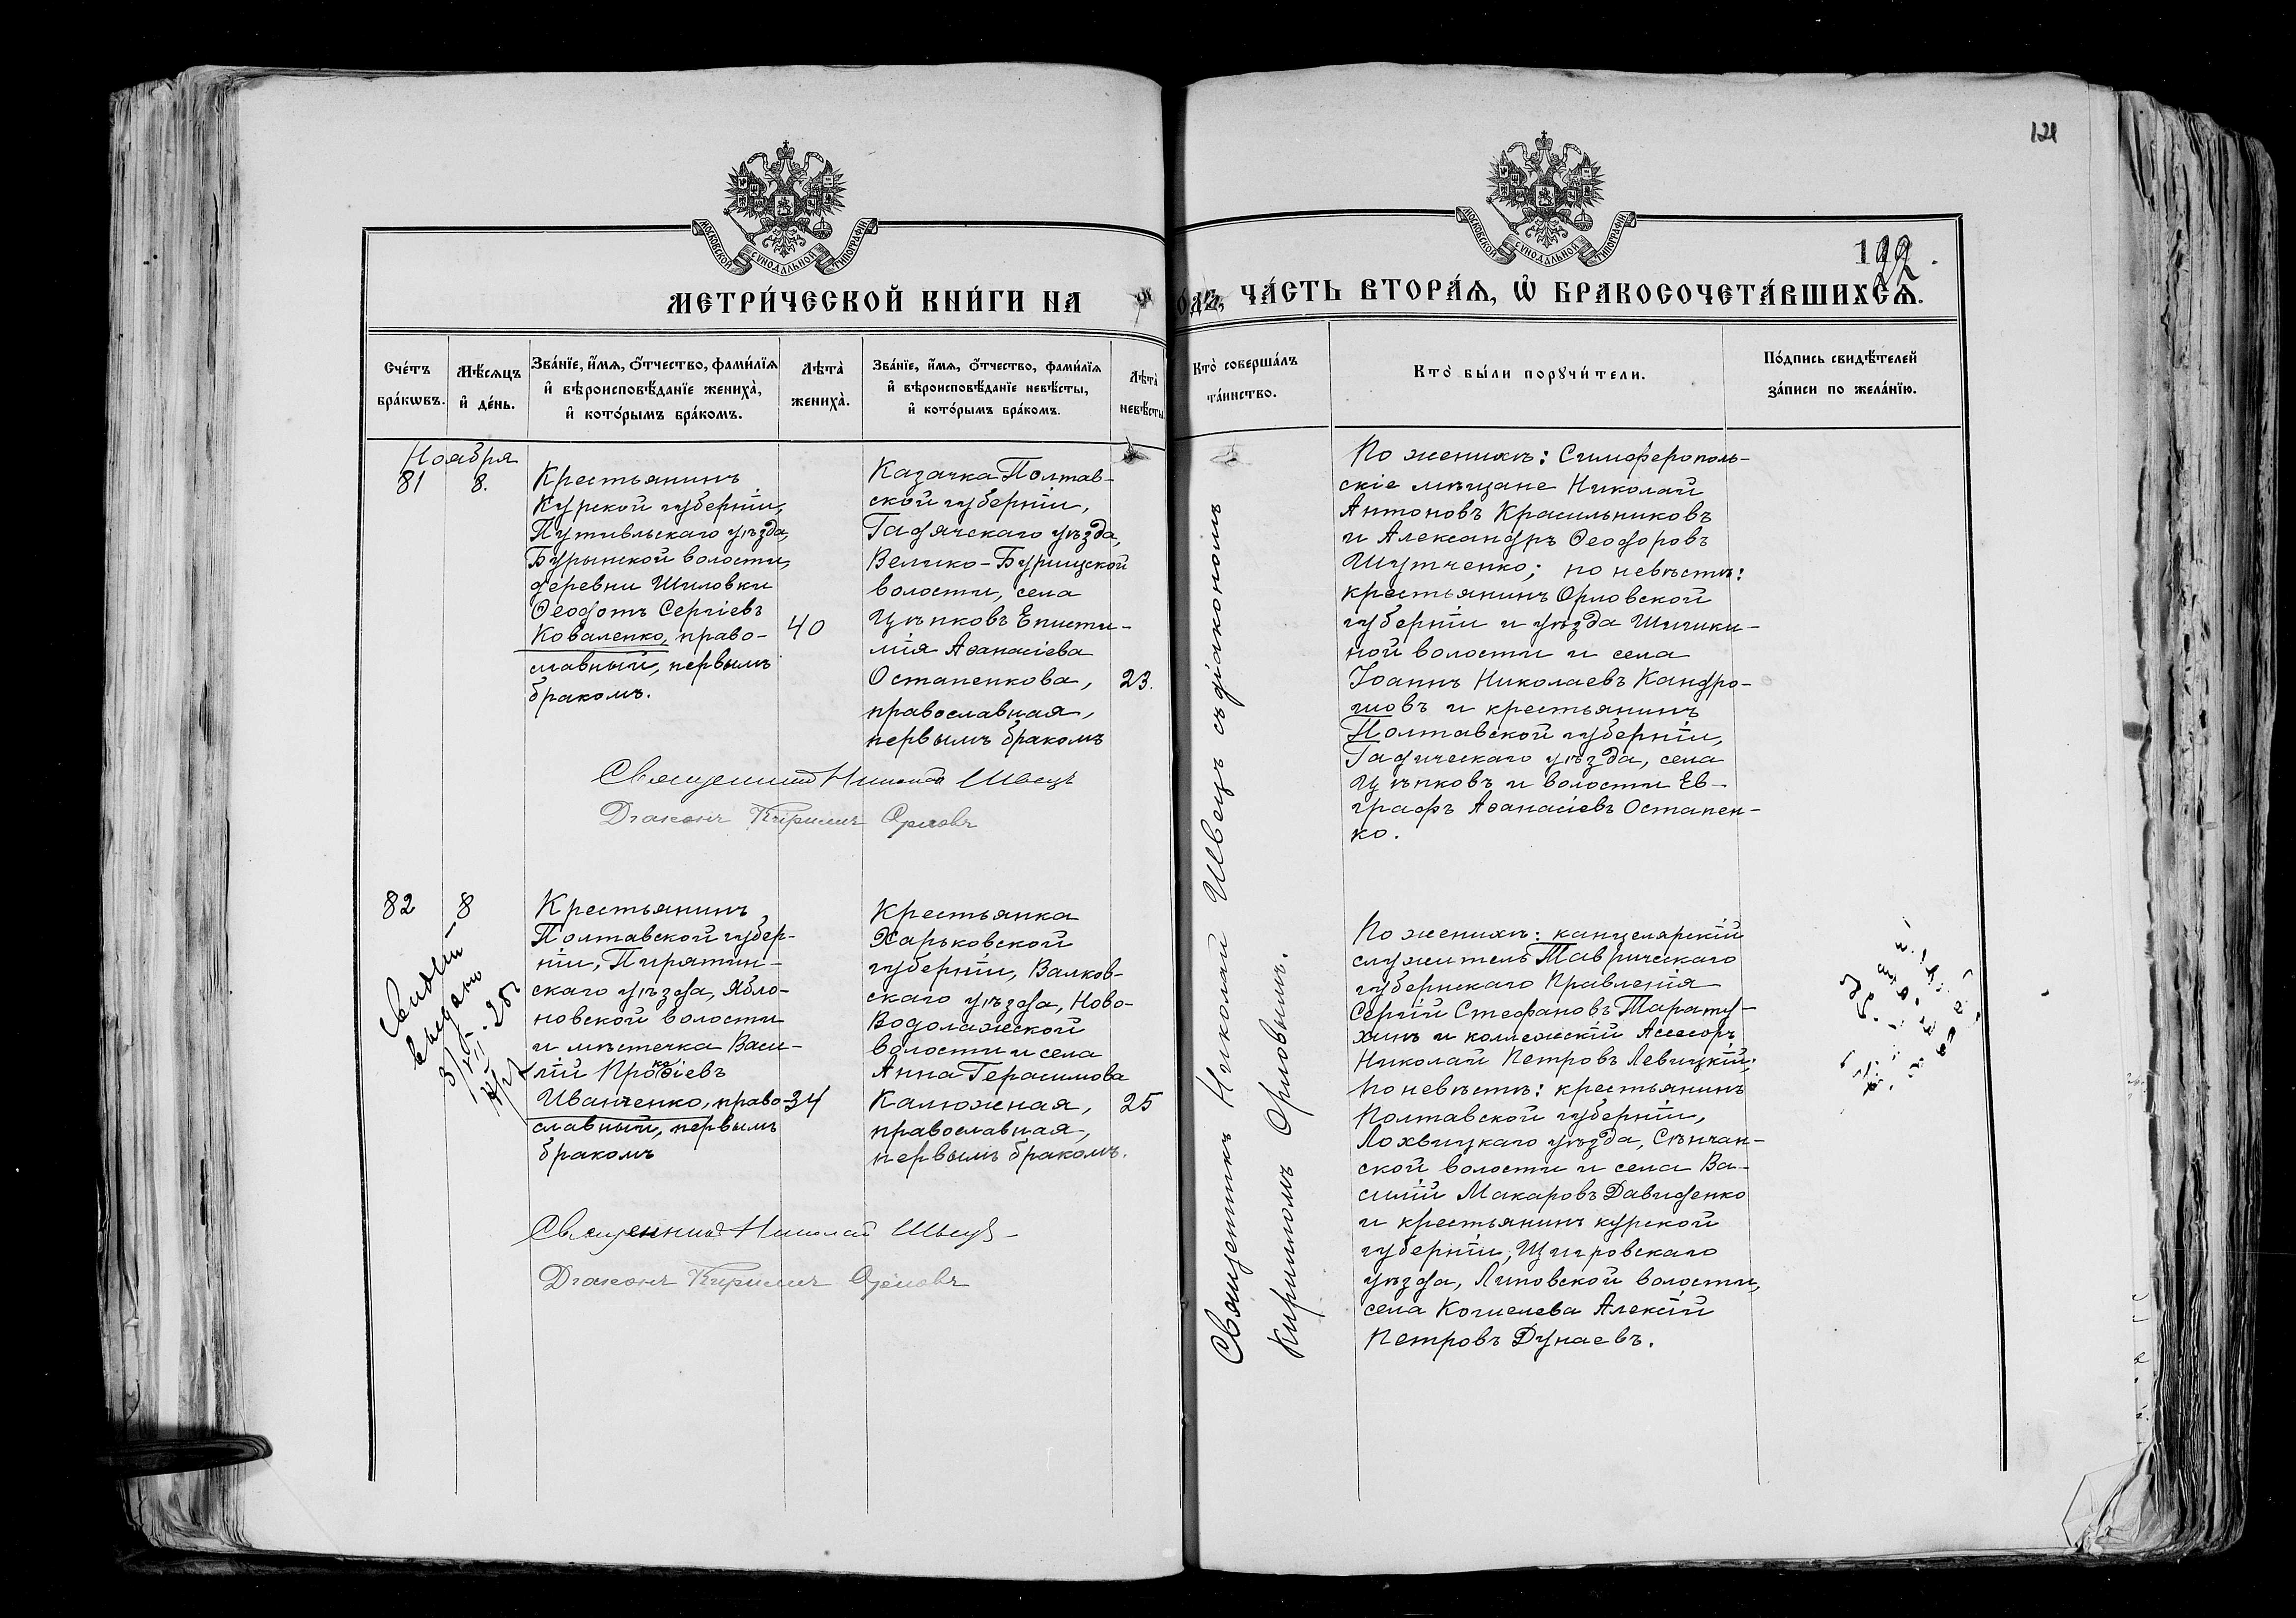 121
МОСКОВСКОЙ СѴНОДАЛЬНОЙ ТИПОГРАФІИ
МОСКОВСКОЙ СѴНОДАЛЬНОЙ ТИПОГРАФІИ
МЕТРИ́ЧЕСКОЙ КНИ́ГИ НА
ЧА́СТЬ ВТОРА́Я, Ѡ҆ БРАКОСОЧЕТА́ВШИХСѦ.
Сче́тъ
бра́кѡвъ.
Мѣ́сѧцъ
и҆ де́нь.
Зва́нїе, и҆́мѧ, ѻ҆́тчество, фами́лїѧ
и҆ вѣроисповѣ́данїе жениха̀,
и҆ кото́рымъ бра́комъ.
Лѣта̀
жениха̀.
Зва́нїе, и҆́мѧ, ѻ҆́тчество, фами́лїѧ
и҆ вѣроисповѣ́данїе невѣ́сты,
и҆ кото́рымъ бра́комъ.
Лѣта̀
невѣ́сты
Кто̀ соверша́лъ
та́инство.
Кто̀ бы́ли порꙋчи́тели.
По́дпись свидѣ́телей
за́писи по жела́нїю.
Ноября
81
8.
Крестьянинъ
Курской губерніи,
Путивльскаго уѣзда,
Бурынской волости,
деревни Шиловки
Ѳеодотъ Сергіевъ
Коваленко, право-
славный, первымъ
бракомъ.
40
Казачка Полтав-
ской губерніи,
Гадячскаго уѣзда,
Велико-Будищской
волости, села
Цѣпковъ Еписти-
мія Аѳанасіева
Остапенкова,
православная,
первымъ бракомъ
23.
Священникъ Николай Швецъ
Діаконъ Кириллъ Орловъ
Священникъ Николай Швецъ съ діакономъ
Кирилломъ Орловымъ.
По женихѣ: Симферополь-
скіе мѣщане Николай
Антоновъ Красильниковъ
и Александръ Ѳеодоровъ
Шутченко; по невѣстѣ:
крестьянинъ Орловской
губерніи и уѣзда Шишки-
ной волости и села
Іоаннъ Николаевъ Кандро-
шовъ и крестьянинъ
Полтавской губерніи,
Гадяческаго уѣзда, села
Цѣпковъ и волости Ев-
графъ Аѳанасіевъ Остапен-
ко.
82
8
выдано
Крестьянинъ
Полтавской губер-
ніи, Пирятин-
скаго уѣзда, Ябло-
новской волости
и мѣстечка Васи-
лій Прокофіевъ
Иванченко, право-
славный, первымъ
бракомъ
34
Крестьянка
Харьковской
губерніи, Валков-
скаго уѣзда, Ново-
Водолажской
волости и села
Анна Герасимова
Калюжная,
православная,
первымъ бракомъ.
25
Священникъ Николай Швецъ
Діаконъ Кириллъ Орловъ
По женихѣ: канцелярскій
служитель Таврическаго
губернскаго Правленія
Сергій Стефановъ Тарату-
хинъ и коллежскій Асессоръ
Николай Петровъ Левицкій;
по невѣстѣ: крестьянинъ
Полтавской губерніи,
Лохвицкаго уѣзда, Сѣнчан-
ской волости и села Ва-
силій Макаровъ Давиденко
и крестьянинъ курской
губерніи, Щигровскаго
уѣзда, Липовской волости,
села Кошелева Алексій
Петровъ Дунаевъ.